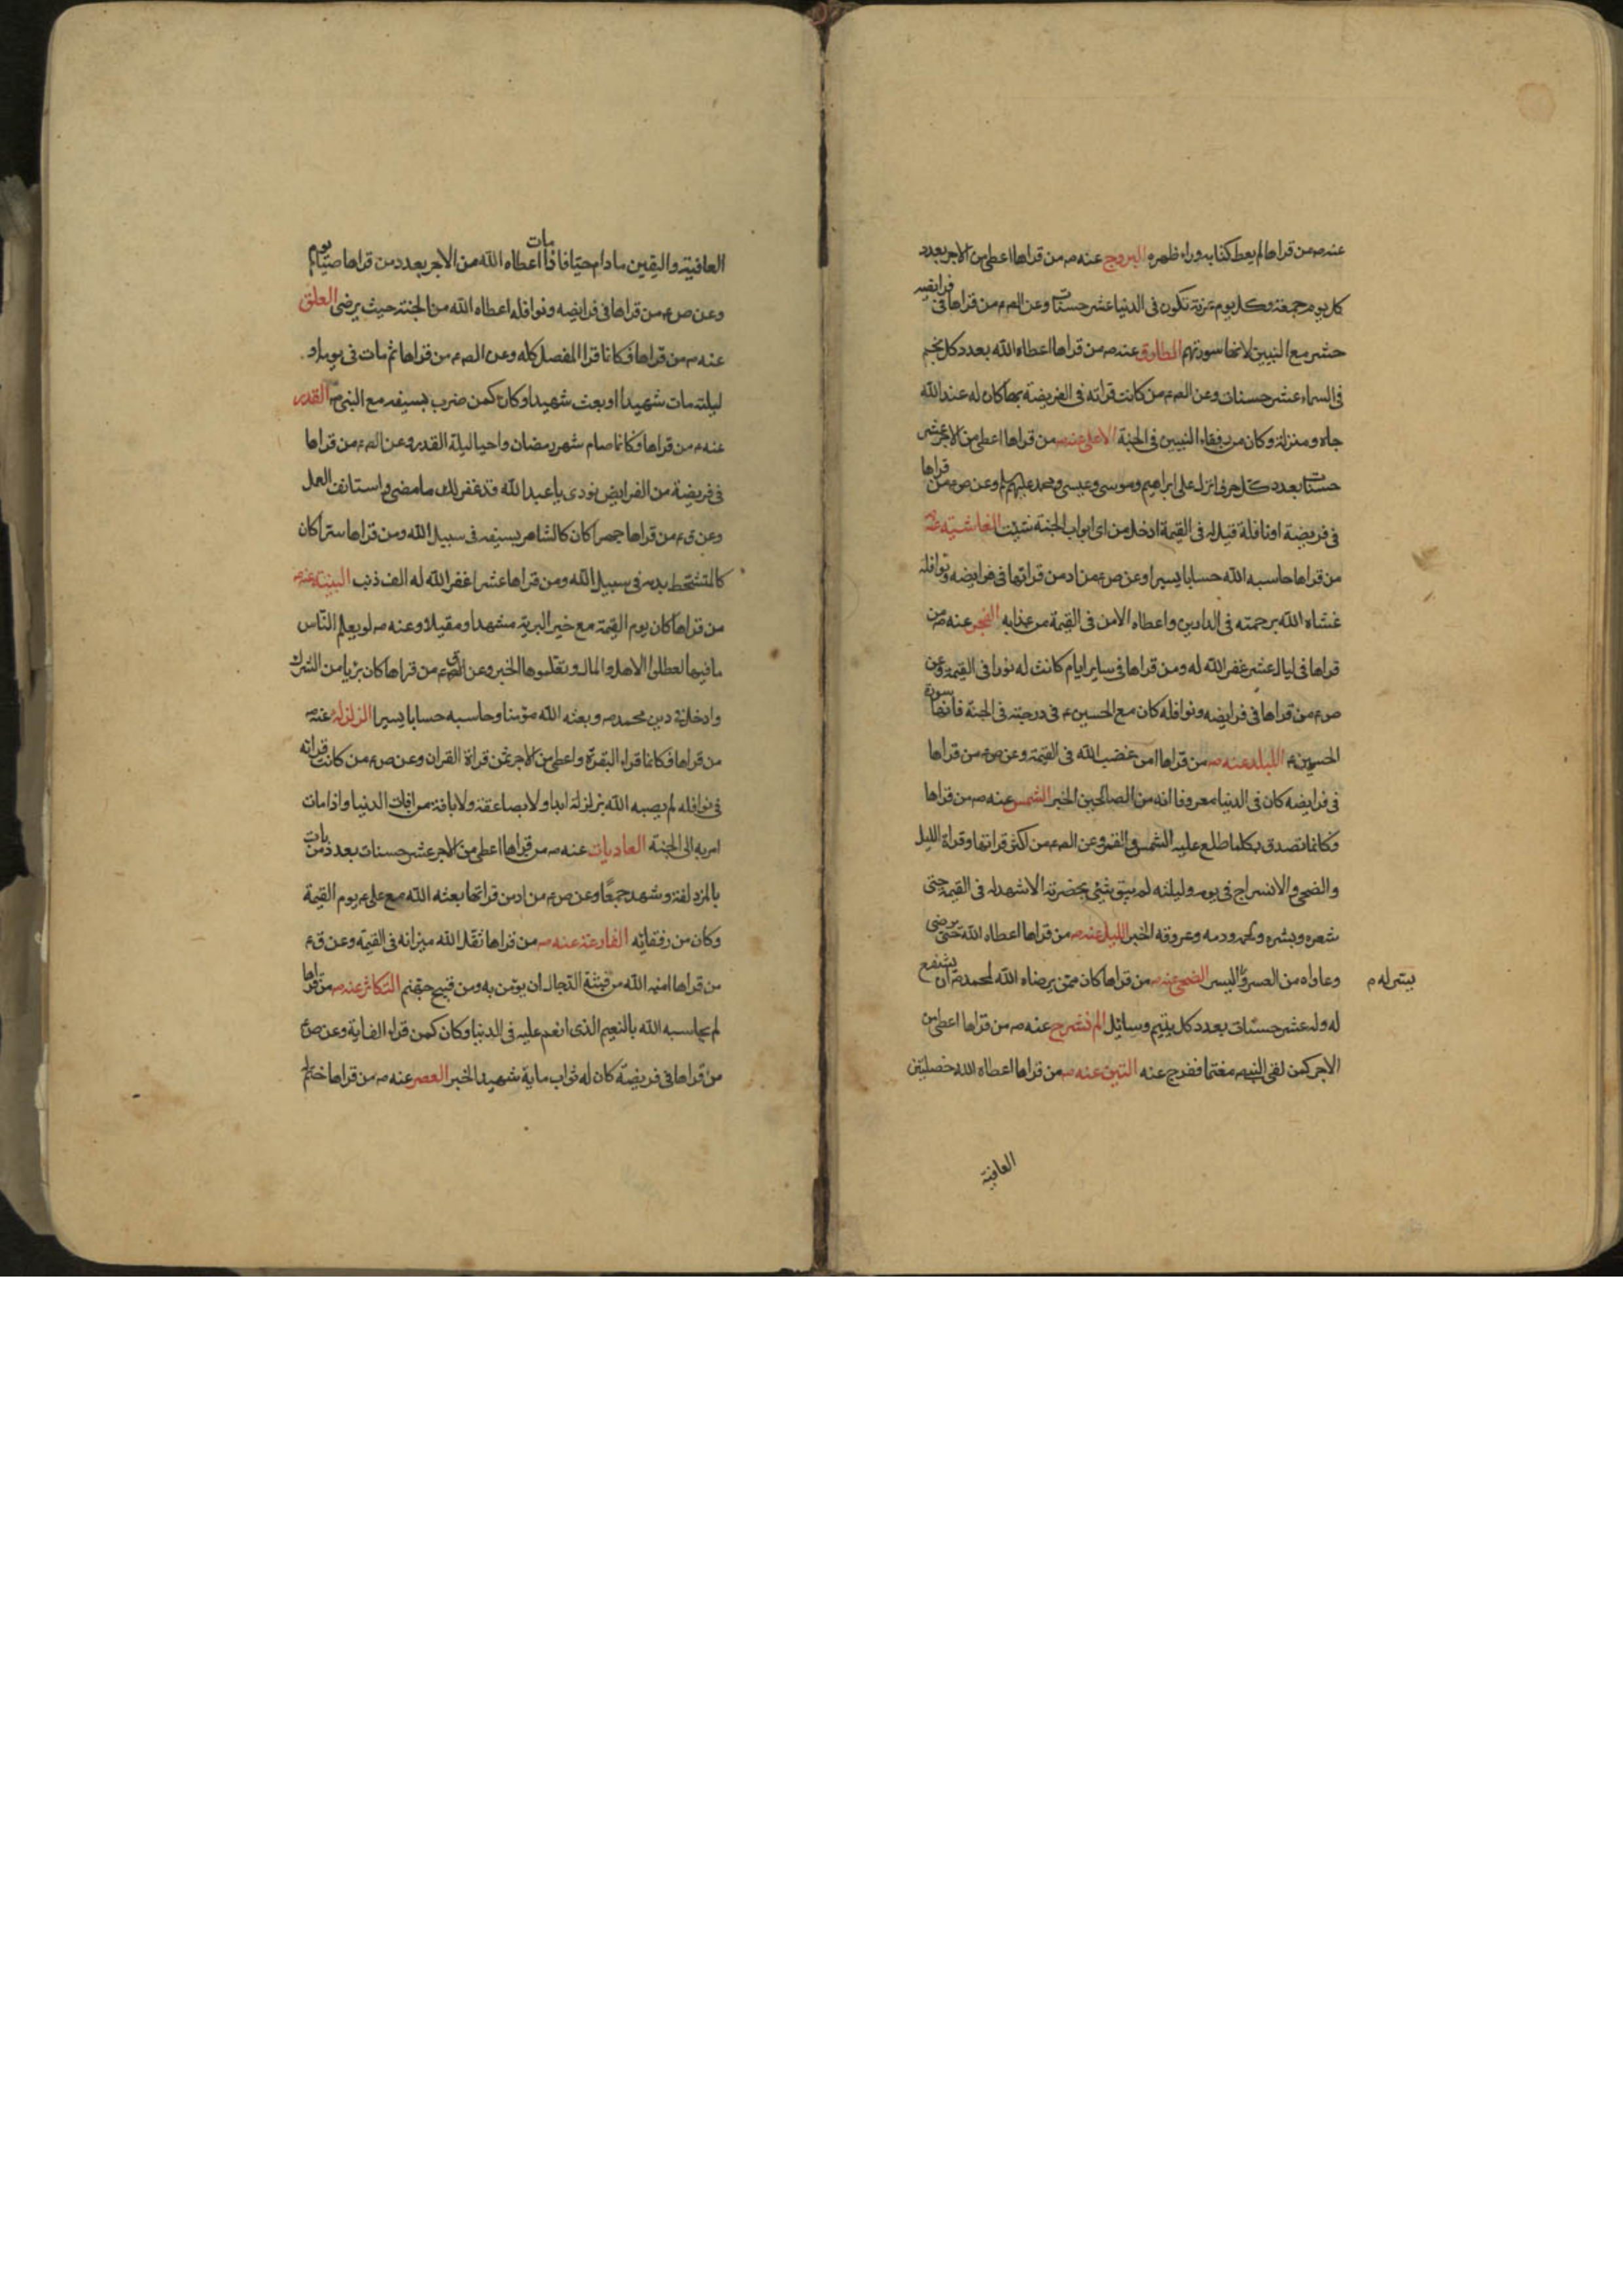 عنه ص من قراها لم يعط كتابه وراء ظهره البروج عنه ص من قراها اعطى من الاجر بعدد
كل يوم جمعة وكل يوم عرفة تكون فى الدنيا عشر حسنات وعن الص ع من قراها فى فرايضه
حشر مع النبيين لانها سورتهم الطارق عنه ص من قراها اعطاه الله بعدد كل نجم
فى السماء عشر حسنات وعن الص ع من كانت قراته فى الفريضة بها كان له عند الله
جاه ومنزلة وكان من رفقاء النبيين فى الجنة الاعلى عنه ص من قراها اعطى من الاجر عشر
حسنات بعدد كل حرف انزله على ابراهيم وموسى وعيسى ومحمد عليهم وعن ص ع من قراها
فى فريضة او نافلة قيل له فى القيمة ادخل من اى ابواب الجنة شئت الغاشية عنه ص
من قراها حاسبه الله حسابا يسيرا وعن ص ع من ادمن قراتها فى فرايضه ونوافله
غشاه الله برحمته فى الدارين واعطاه الامن فى القيمة من عذابه الفجر عنه ص من
قراها فى ليال عشر غفر الله له ومن قراها فى ساير ايام كانت له نورا فى القيمة وعن
ص ع من قراها فى فرايضه ونوافله كان مع الحسين ع فى درجته فى الجنة فانها سورة
الحسين ع البلد عنه ص من قراها امن غضب الله فى القيمة وعن ص ع من قراها
فى فرايضه كان فى الدنيا معروفا انه من الصالحين الخبر الشمس عنه ص من قراها
فكانما تصدق بكلما طلع عليه الشمس والقمر وعن الص ع من اكثر قراتها وقراة الليل
والضحى والانشراح فى يومه وليلته لم يبق شئ بحضرته الا شهد له فى القيمة حتى
شعره وبشره ولحمه ودمه وعروقه الخبر الليل عنه ص من قراها اعطاه الله حتى يرضى
وعافاه من العسر واليسر الضحى عنه ص من قراها كان ممن يرضاه الله لمحمد ص ان يشفع
يسر له م
له وله عشر حسنات بعدد كل يتيم وسائل الم نشرح عنه ص من قراها اعطى من
الاجر كمن لقى النبى ص مغتما ففرج عنه التين عنه ص من قراها اعطاه الله خصلتين
العافية
العافية واليقين ما دام حيا فاذا مات اعطاه الله من الاجر بعدد من قراها صيام يوم
وعن ص ع من قراها فى فرايضه ونوافله اعطاه الله من الجنة حيث يرضى العلق
عنه ص من قراها فكانما قرا المفصل كله وعن الص ع من قراها ثم مات فى يومه او
ليلته مات شهيدا او بعث شهيدا وكان كمن ضرب بسيفه مع النبى ص القدر
عنه ص من قراها فكانما صام شهر رمضان واحيا ليلة القدر وعن الص ع من قراها
فى فريضة من الفرايض نودى يا عبد الله قد غفر لك ما مضى فاستانف العمل
وعن ق ع من قراها جهرا كان كالشاهر بسيفه فى سبيل الله ومن قراها سرا كان
كالمتشحط بدمه فى سبيل الله ومن قراها عشرا غفر الله له الف ذنب البينة عنه ص
من قراها كان يوم القيمة مع خير البرية مشهدا ومقيلا وعنه ص لو يعلم الناس
ما فيها لعطلوا الاهل والمال وتعلموها الخبر وعن ق ع من قراها كان بريا من الشرك
وادخل فى دين محمد ص وبعثه الله مؤمنا وحاسبه حسابا يسيرا الزلزلة عنه ص
من قراها فكانما قراء البقرة واعطى من الاجر كمن قراة القران وعن ص ع من كانت قراته
فى نوافله لم يصبه الله بزلزلة ابدا ولا بصاعقة ولا بافة من افات الدنيا واذا مات
امر به الى الجنة العاديات عنه ص من قراها اعطى من الاجر عشر حسنات بعدد من بات
بالمزدلفة وشهد جمعا وعن ص ع من ادمن قراتها بعثه الله مع على ع يوم القيمة
وكان من رفقائه القارعة عنه ص من قراها ثقل الله ميزانه فى القيمة وعن ق ع
من قراها امنه الله من فتنة الدجال ان يؤمن به ومن قيح جهنم التكاثر عنه ص من قراها
لم يحاسبه الله بالنعيم الذى انعم عليه فى الدنيا وكان كمن قراء الف اية وعن ص ع
من قراها فى فريضة كان له ثواب ماية شهيد الخبر العصر عنه ص من قراها ختم